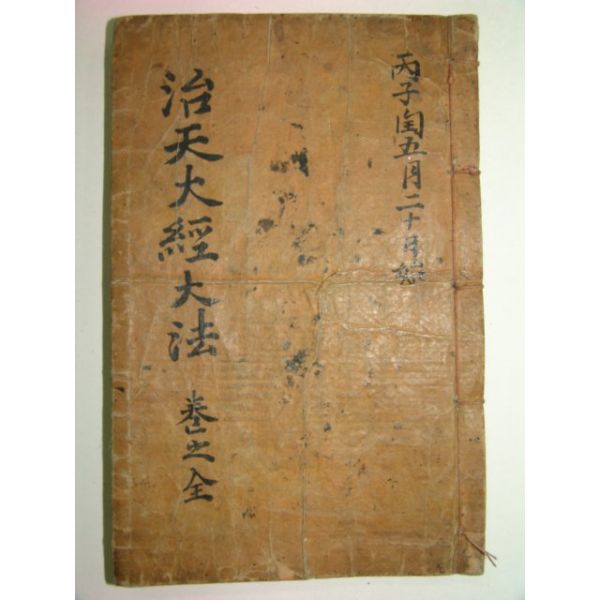 丙子閏五月二十日
治天大經大法 卷之全